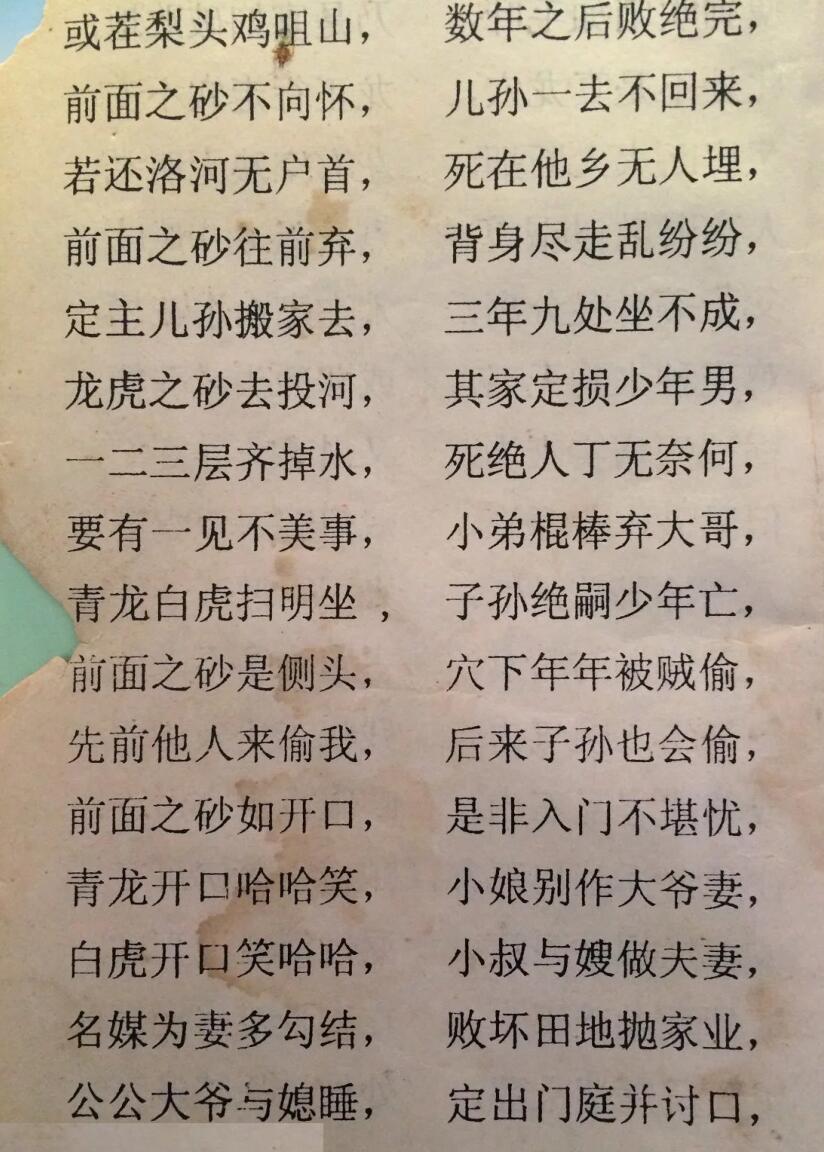 或茬梨头鸡咀山， 数年之后败绝完，
前面之砂不向怀， 儿孙一去不回来，
若还洛河无户首， 死在他乡无人埋，
前面之砂往前弃， 背身尽走乱纷纷，
定主儿孙搬家去， 三年九处坐不成，
龙虎之砂去投河， 其家定损少年男，
一二三层齐掉水， 死绝人丁无奈何，
要有一见不美事， 小弟棍棒弃大哥，
青龙白虎扫明坐， 子孙绝嗣少年亡，
前面之砂是侧头， 穴下年年被贼偷，
先前他人来偷我， 后来子孙也会偷，
前面之砂如开口， 是非入门不堪忧，
青龙开口哈哈笑， 小娘别作大爷妻，
白虎开口笑哈哈， 小叔与嫂做夫妻，
名媒为妻多勾结， 败坏田地抛家业，
公公大爷与媳睡， 定出门庭并讨口，